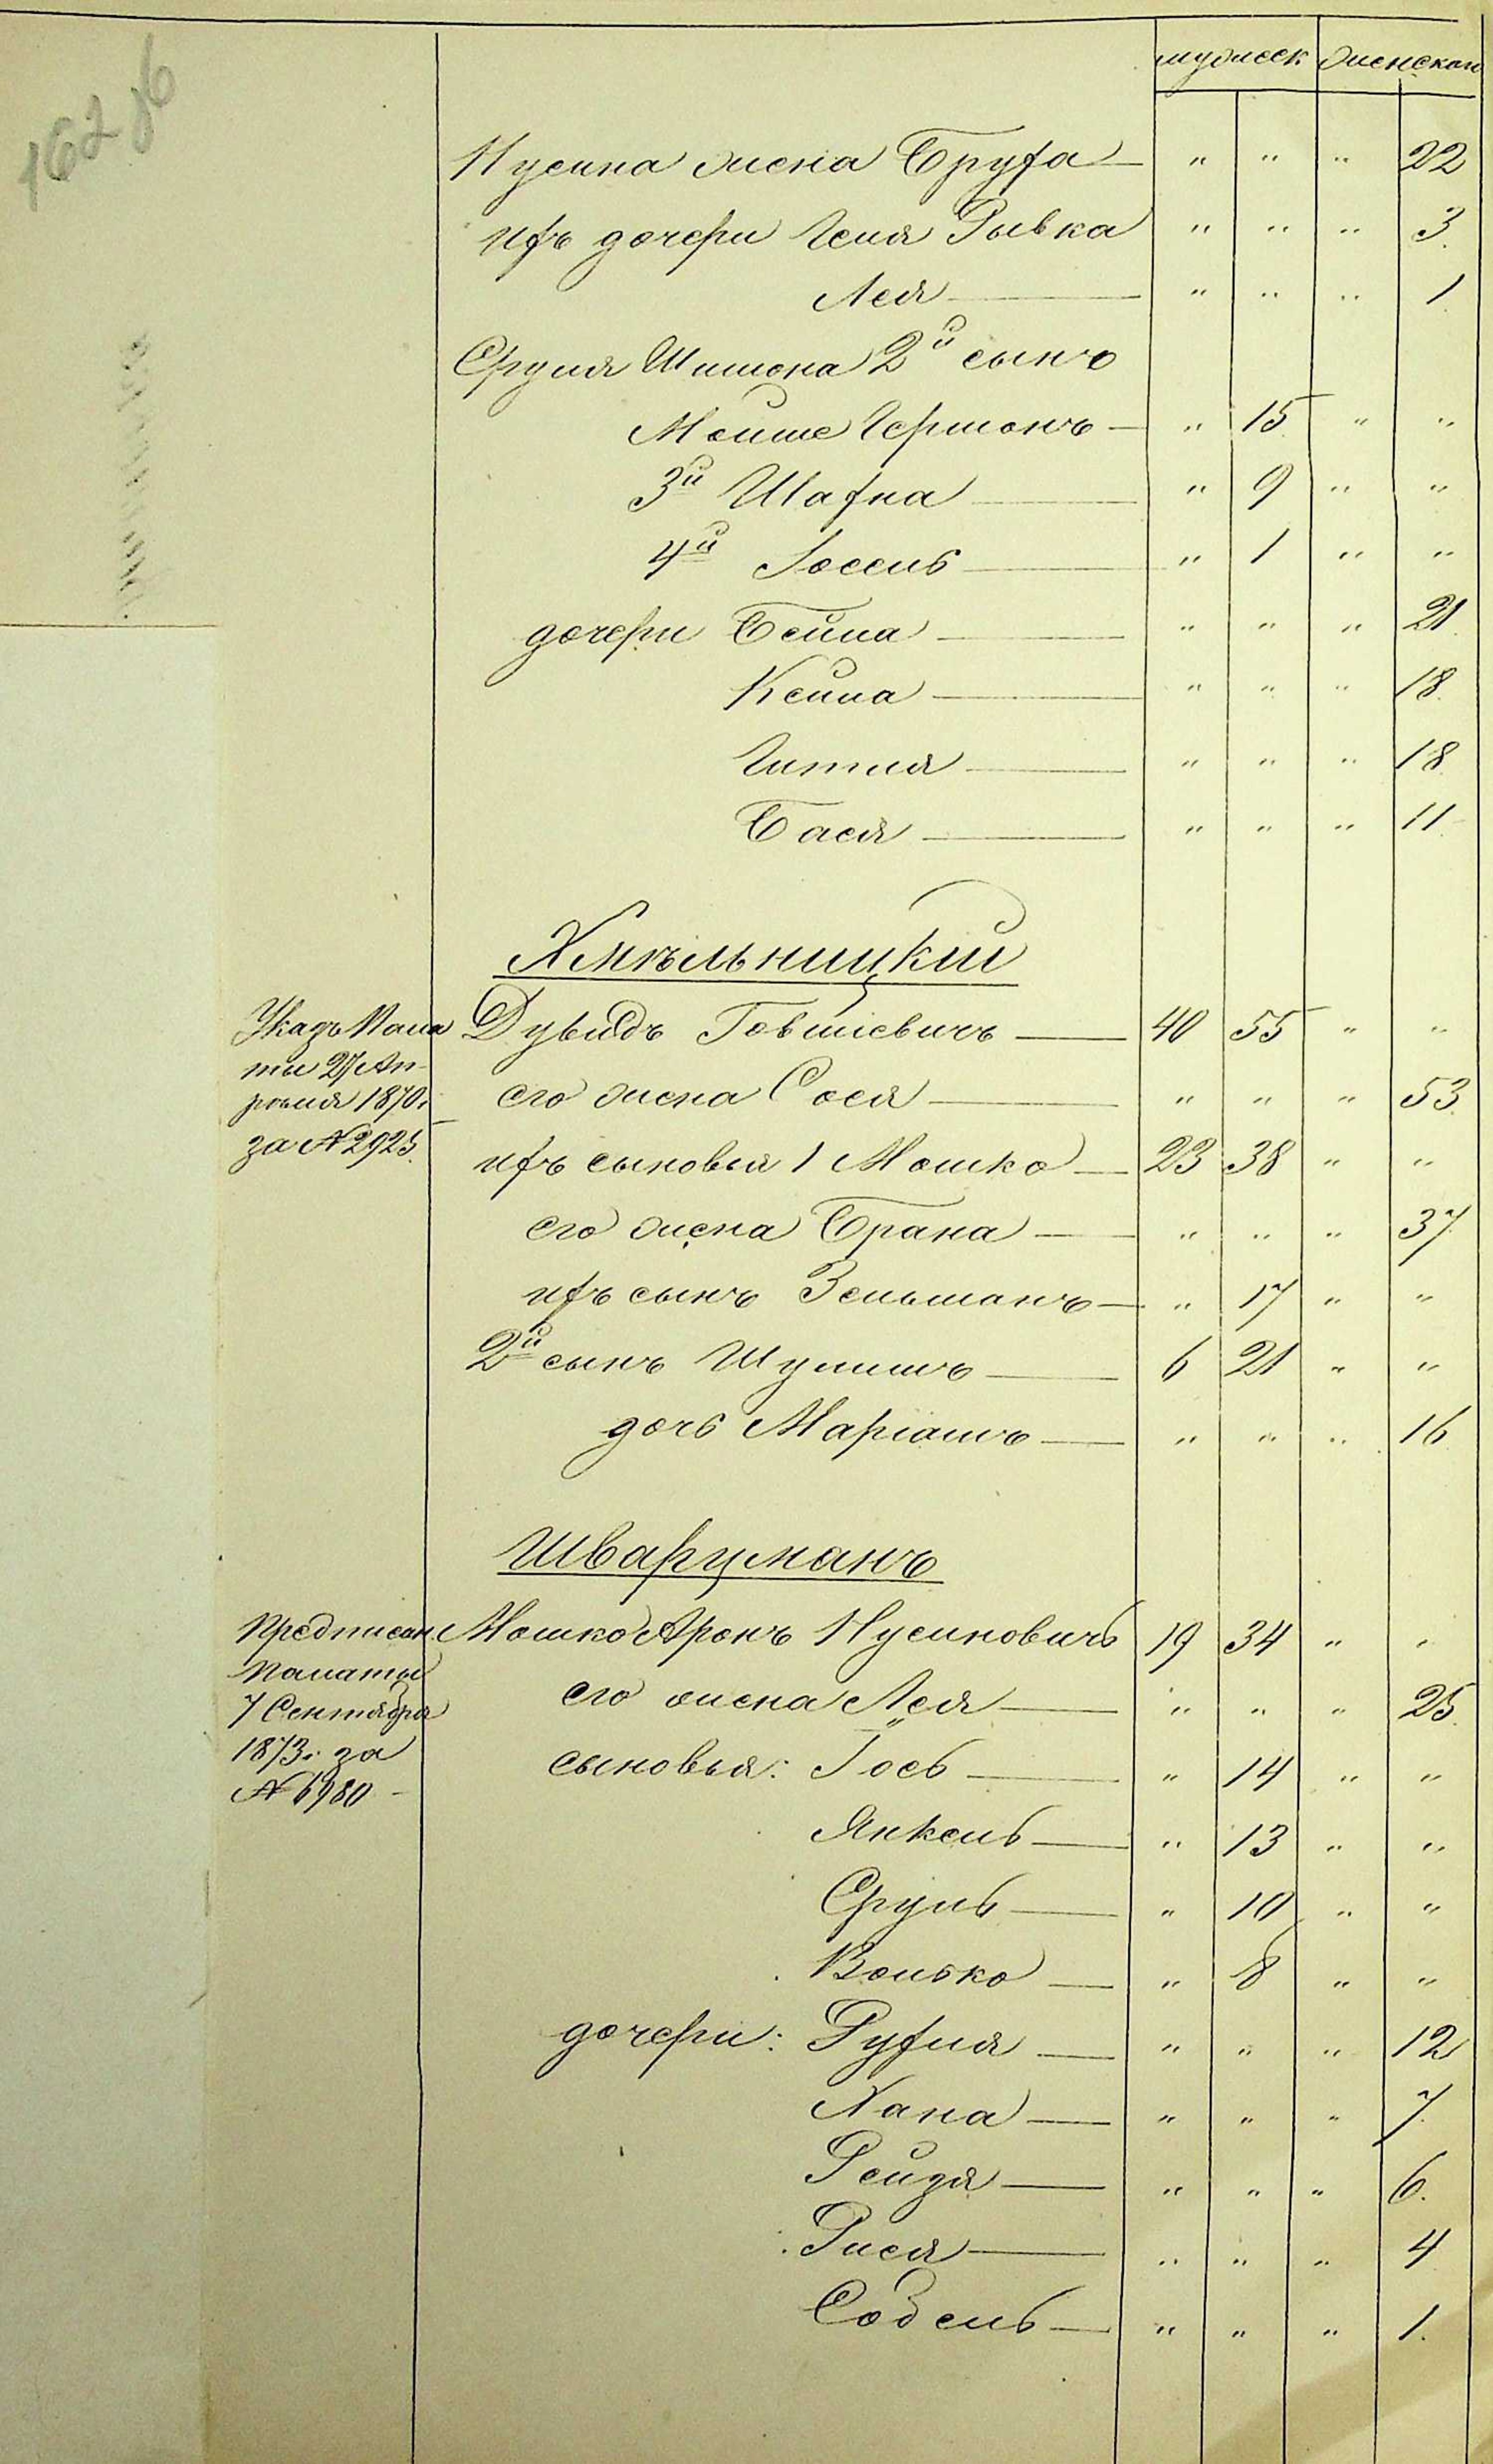 162 об
мужеск женскаго
Нусина жена Брухa — " " " 22
ихъ дочери Геня Рывка " " " 3.
Лея — " " " 1.
Сруля Шимона 2й сынъ
Мойше Гершонъ — " 15 " "
3й Шахна — " 9 " "
4й Іоссель — " 1 " "
дочери Бейла — " " " 21.
Кейла — " " " 18.
Гитля — " " " 18.
Бася — " " " 11.
Хмѣльницкій
Указъ Пала
ты 27 Ап-
рѣля 1870г.
за № 2925.
Дувидъ Говшіевичъ — 40 55 " "
его жена Сося — " " " 53.
ихъ сыновья 1 Мошко — 23 38 " "
его жена Брана — " " " 37.
ихъ сынъ Зельманъ — " 17 " "
2й сынъ Шулимъ — 6 21 " "
дочь Маріамъ — " " " 16
Шварцманъ
Предписан.
Палаты
7 Сентября
1873г. за
№ 6980 -
Мошко Аронъ Нусиновичъ 19 34 " "
его жена Лея — " " " 25.
сыновья: Іось — " 14 " "
Янкель — " 13 " "
Сруль — " 10 " "
Волько — " 8 " "
дочери: Рухля — " " " 12
Хана — " " " 7.
Рейзя — " " " 6.
Рися — " " " 4
Содель — " " " 1.